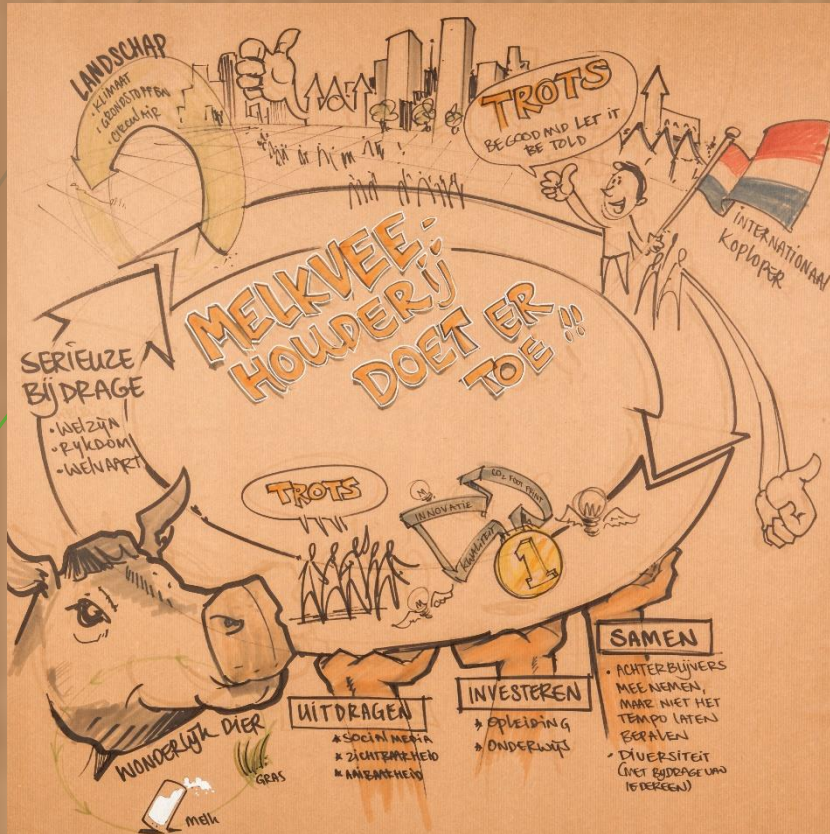 LANDSCHAP
• KLIMAAT
• GRONDSTOFFEN
• CIRCULAIR
TROTS
BE GOOD AND LET IT
BE TOLD
INTERNATIONAAL
KOPLOPER
MELKVEE-
HOUDERIJ
DOET ER
TOE !!
SERIEUZE
BIJDRAGE
• WELZIJN
• RYKDOM
• WELVAART
TROTS
INNOVATIE
KWALITEIT
CO2 FOOT PRINT
1
WONDERLIJK DIER
GRAS
MELK
UITDRAGEN
* SOCIAL MEDIA
* ZICHTBAARHEID
* AAIBAARHEID
INVESTEREN
* OPLEIDING
* ONDERWIJS
SAMEN
• ACHTERBLIJVERS
MEENEMEN,
MAAR NIET HET
TEMPO LATEN
BEPALEN
• DIVERSITEIT
(MET BIJDRAGE VAN
IEDEREEN)